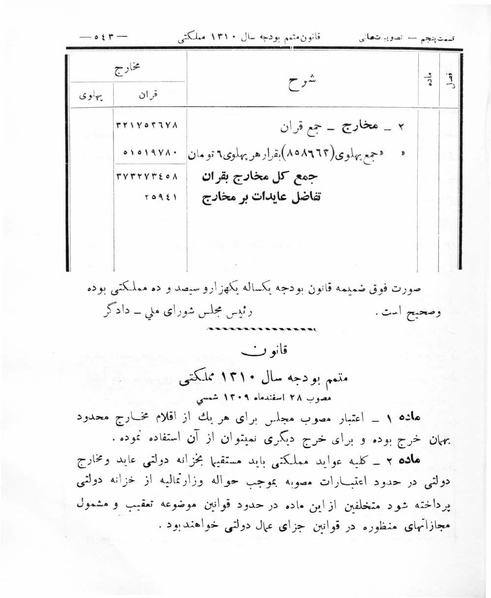 قسمت پنجم — تصویبات مالی قانون متمم بودجه سال ۱۳۱۰ مملکتی — ۵۴۳ —
فصل ماده شرح مخارج
قران پهلوی
۲ ـ مخارج ـ جمع قران ۳۲۱۷۵۳۶۷۸
» » جمع پهلوی (۸۵۸۶۶۳) بقرار هر پهلوی ۶ تومان ۵۱۵۱۹۷۸۰
جمع کل مخارج بقران ۳۷۳۲۷۳۴۵۸
تفاضل عایدات بر مخارج ۲۵۹۴۱
صورت فوق ضمیمه قانون بودجه یکساله یکهزار و سیصد و ده مملکتی بوده
وصحیح است . رئیس مجلس شورای ملی ـ دادگر
قانون
متمم بودجه سال ۱۳۱۰ مملکتی
مصوب ۲۸ اسفندماه ۱۳۰۹ شمسی
ماده ۱ ـ اعتبار مصوب مجلس برای هر یك از اقلام مخارج محدود
بهمان خرج بوده و برای خرج دیگری نمیتوان از آن استفاده نموده .
ماده ۲ ـ کلیه عواید مملکتی باید مستقیما بخزانه دولتی عاید ومخارج
دولتی در حدود اعتبارات مصوبه بموجب حواله وزارتمالیه از خزانه دولتی
پرداخته شود متخلفین از این ماده در حدود قوانین موضوعه تعقیب و مشمول
مجازاتهای منظوره در قوانین جزای عمال دولتی خواهند بود .